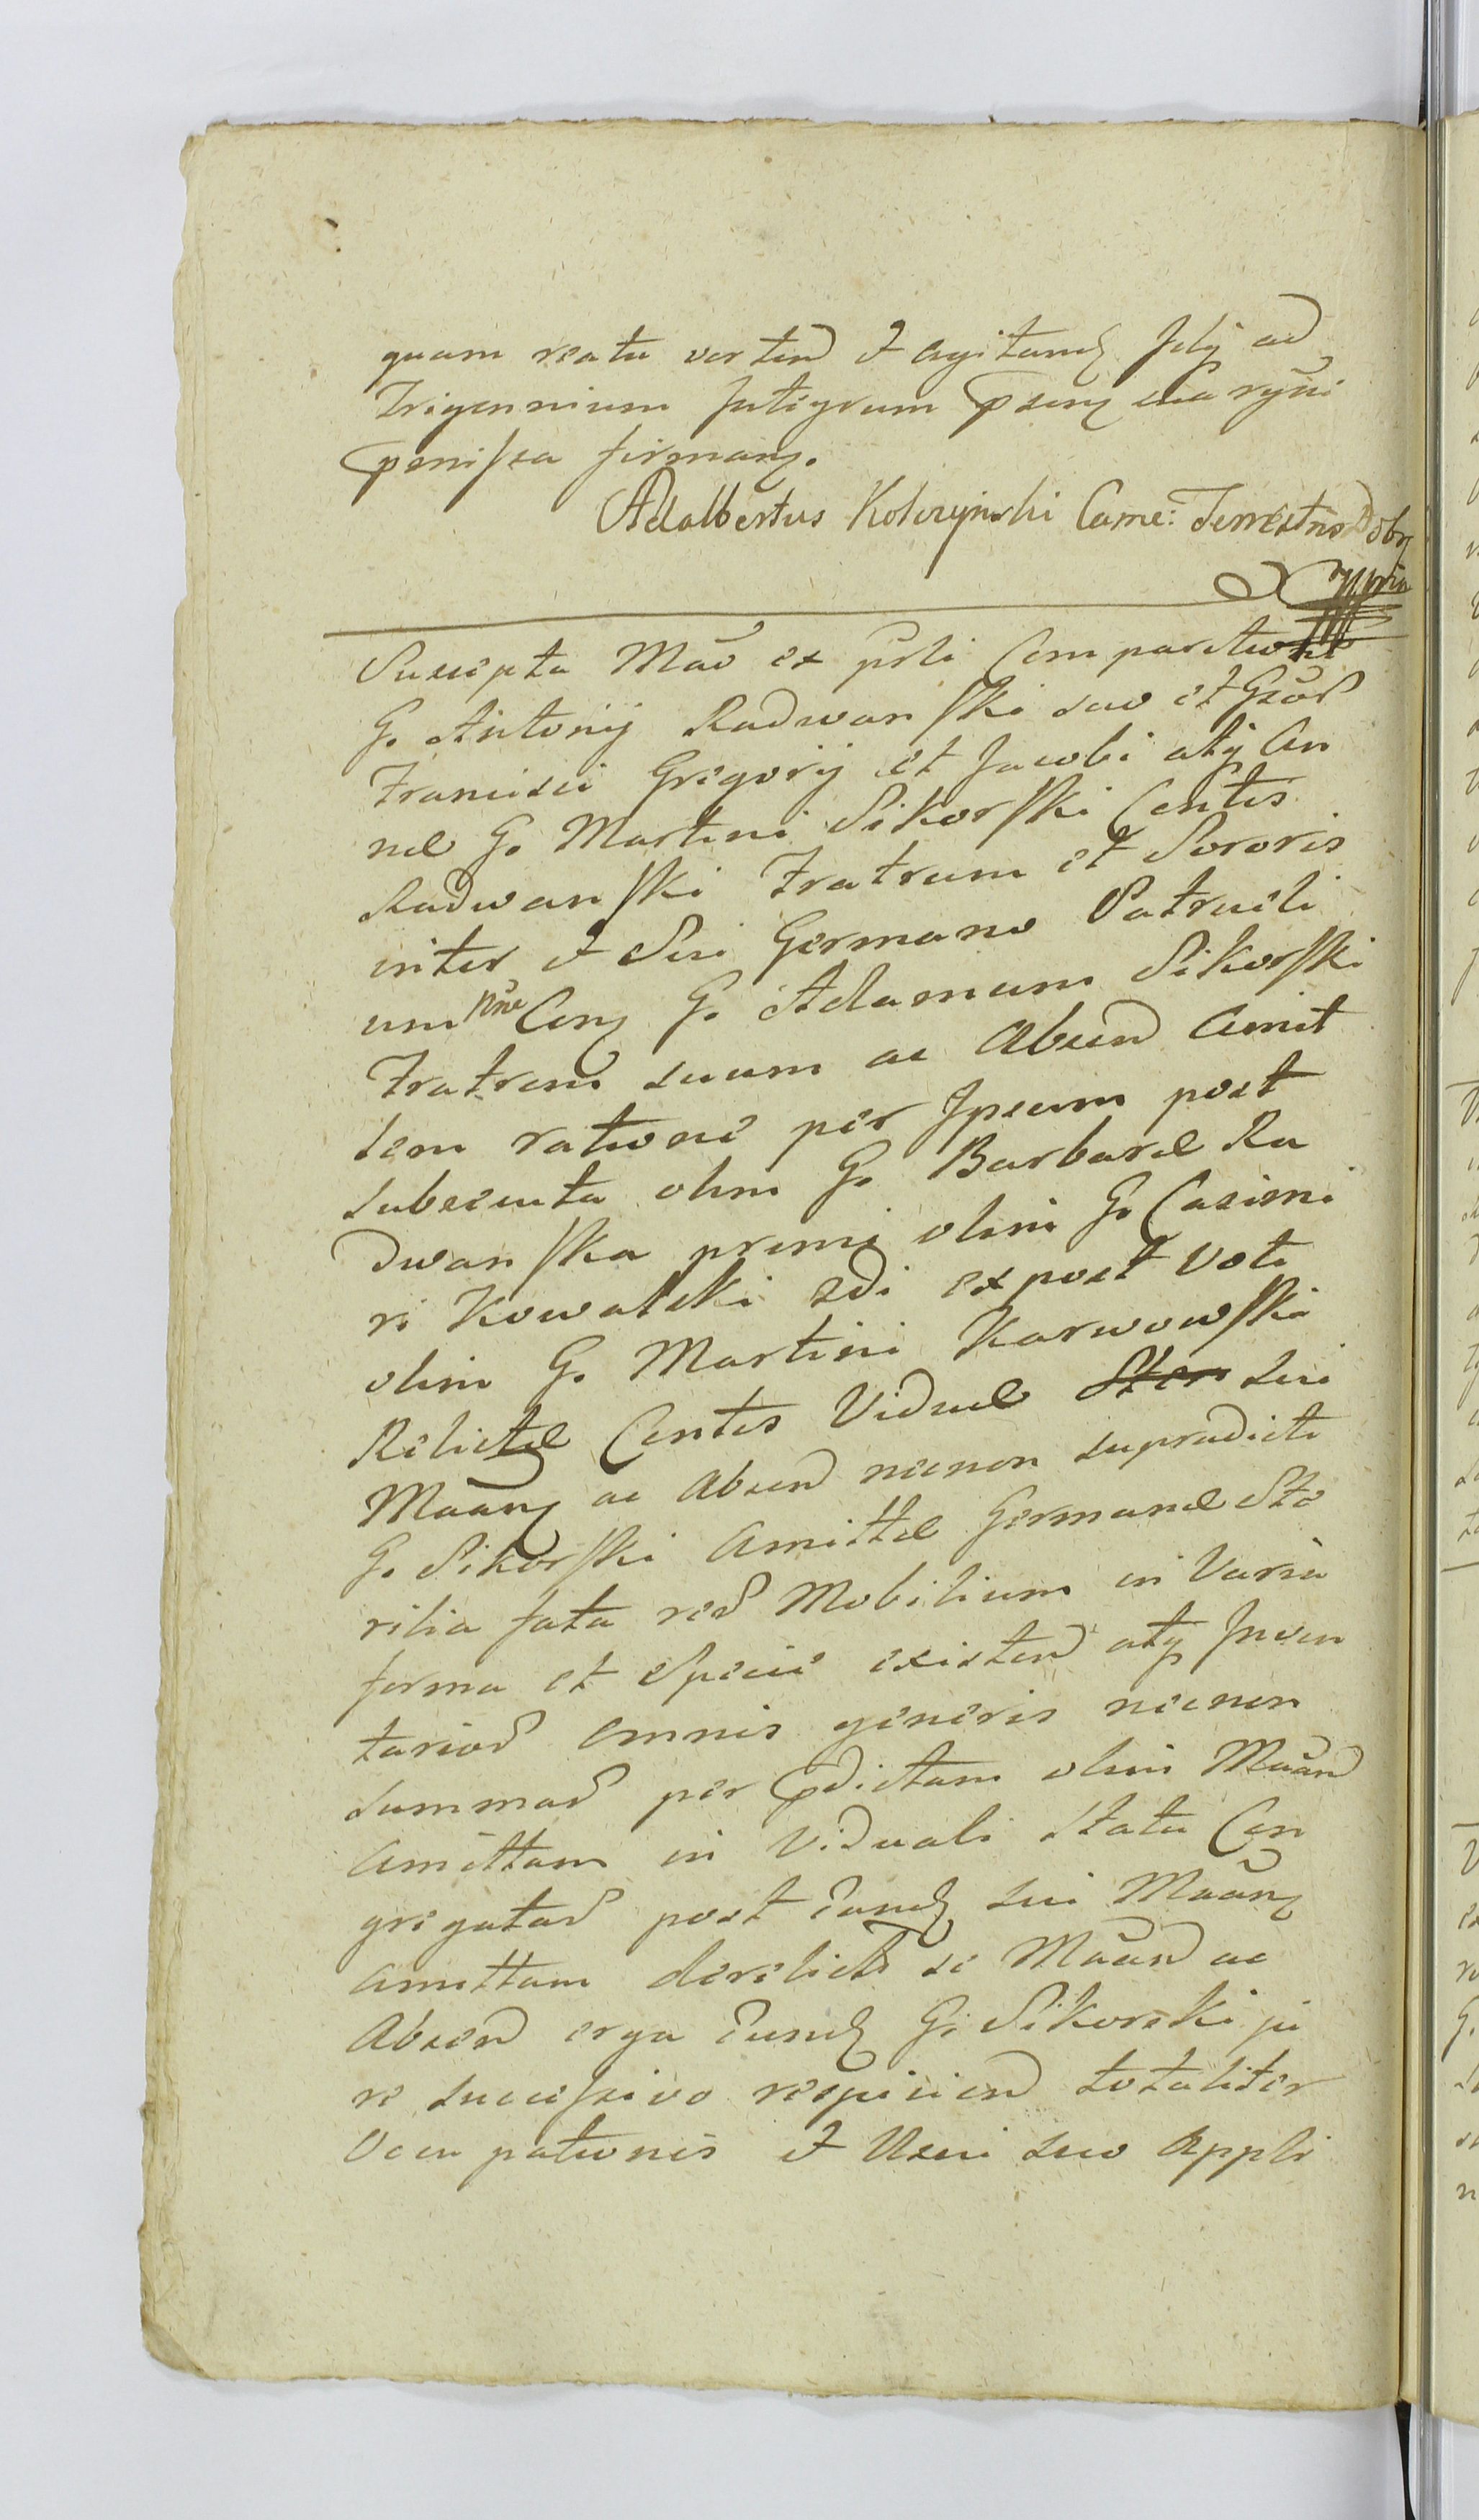 quam reatu verten et agitanđ Jëlÿ ad
Trigennium Integrum
permissa firmanꝫ.
Adalbertus Kołoczyński Came: Terrestris Dobrꝫ
mpria
Suscepta Mãõ ex p̃sti Comparitione
G. Antonij Radwanski suo et Gẽõꝝ
Francisci Gregorij et Jacobi atq̃ An
nae G. Martini Sikorski Contis
Radwanski Fratrum et Sororis
inter et Sui Germano Patrueli
um pñe Conꝫ G. Adamum Sikorski
Fratrem suum ac Absend Amit
tem ratione per Ipsum post
subsecuta olim G. Barbarae Ra
dwanska primi olim G. Casimi
ri Kowalski 2di expost Voti
olim G. Martini Karwowski
Relictae Contis Viduae sui
Mãanꝫ ac Absend necnon supradicti
G. Sikorski Amittae Germanae Ste
rilia fata reꝝ Mobilium in Varia
forma et Specie existend atq̃ Inven
tarioꝝ omnis generis necnon
summaꝝ per p̃dictam olim Mãand
Amittam in Viduali Statu Con
gregataꝝ post Eandꝫ sui Mãanꝫ
Amittam derelictꝝ se Mãand ac
Absend erga Eundꝫ G. Sikorski ju
re successivo respiciend totaliter
Occupationis et Usui suo Appli